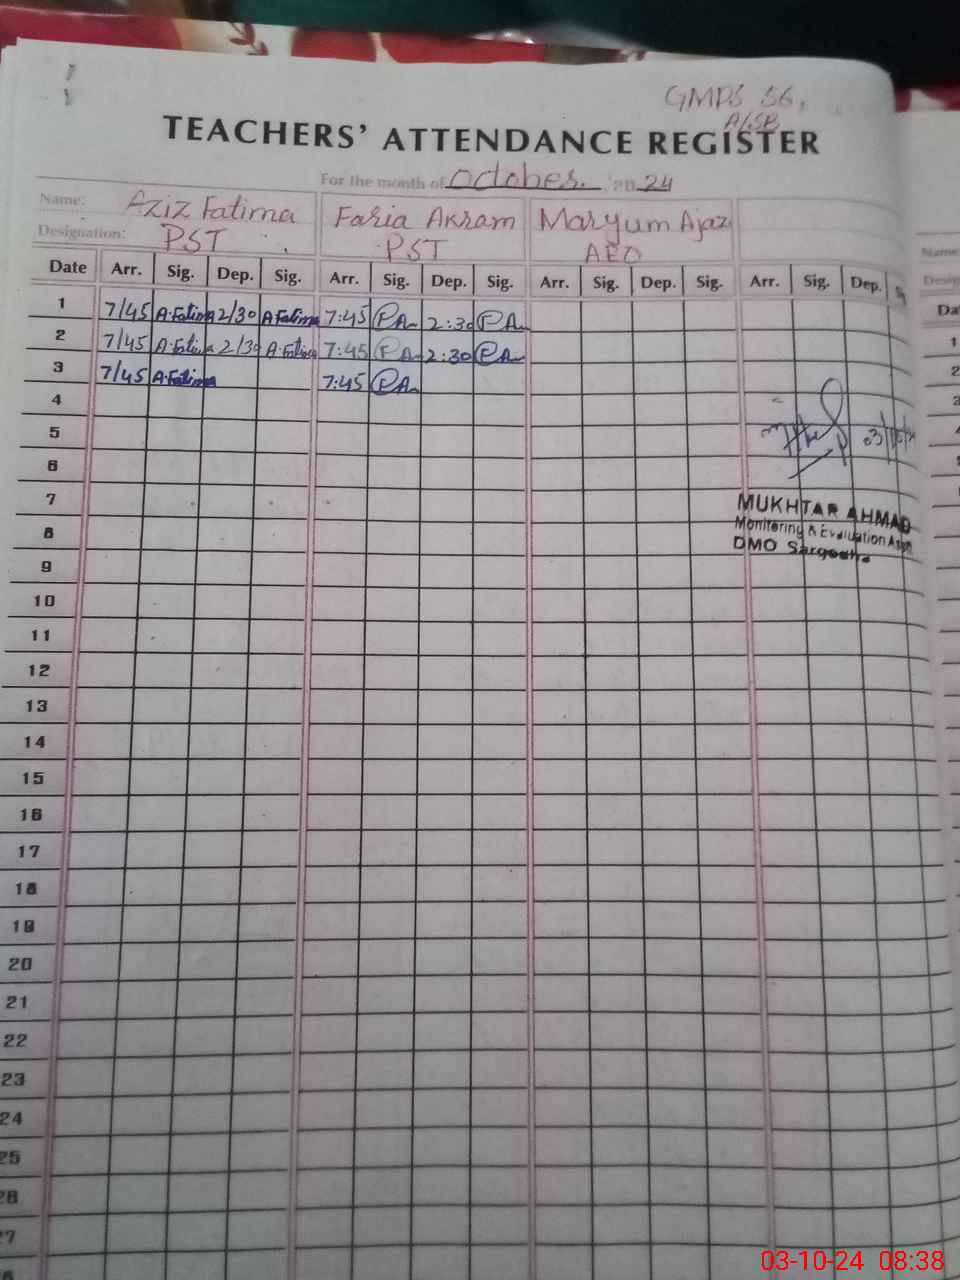 GMPS 56,
A/SB
TEACHERS' ATTENDANCE REGISTER
For the month of October. 20 24
Name: Aziz Fatima Faria Akram Maryum Ajaz
Designation: PST PST AEO
Date Arr. Sig. Dep. Sig. Arr. Sig. Dep. Sig. Arr. Sig. Dep. Sig. Arr. Sig. Dep.
1 7/45 A.Fatima 2/30 A.Fatima 7:45 2:30
2 7/45 A.Fatima 2/30 A.Fatima 7:45 2:30
3 7/45 A.Fatima 7:45
4
5
6
7
8
9
10
11
12
13
14
15
16
17
18
19
20
21
22
23
24
25
26
27
MUKHTAR AHMAD
Monitoring & Evaluation Asstt
DMO Sargodha
Name
Da
1
2
3
03-10-24 08:38